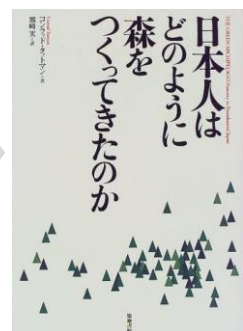 日本人は
どのように
森を
つくってきたのか
THE GREEN ARCHIPELAGO Forestry in Preindustrial Japan
Conrad Totman
コンラッド・タットマン・著
熊崎 実・訳
築地書館